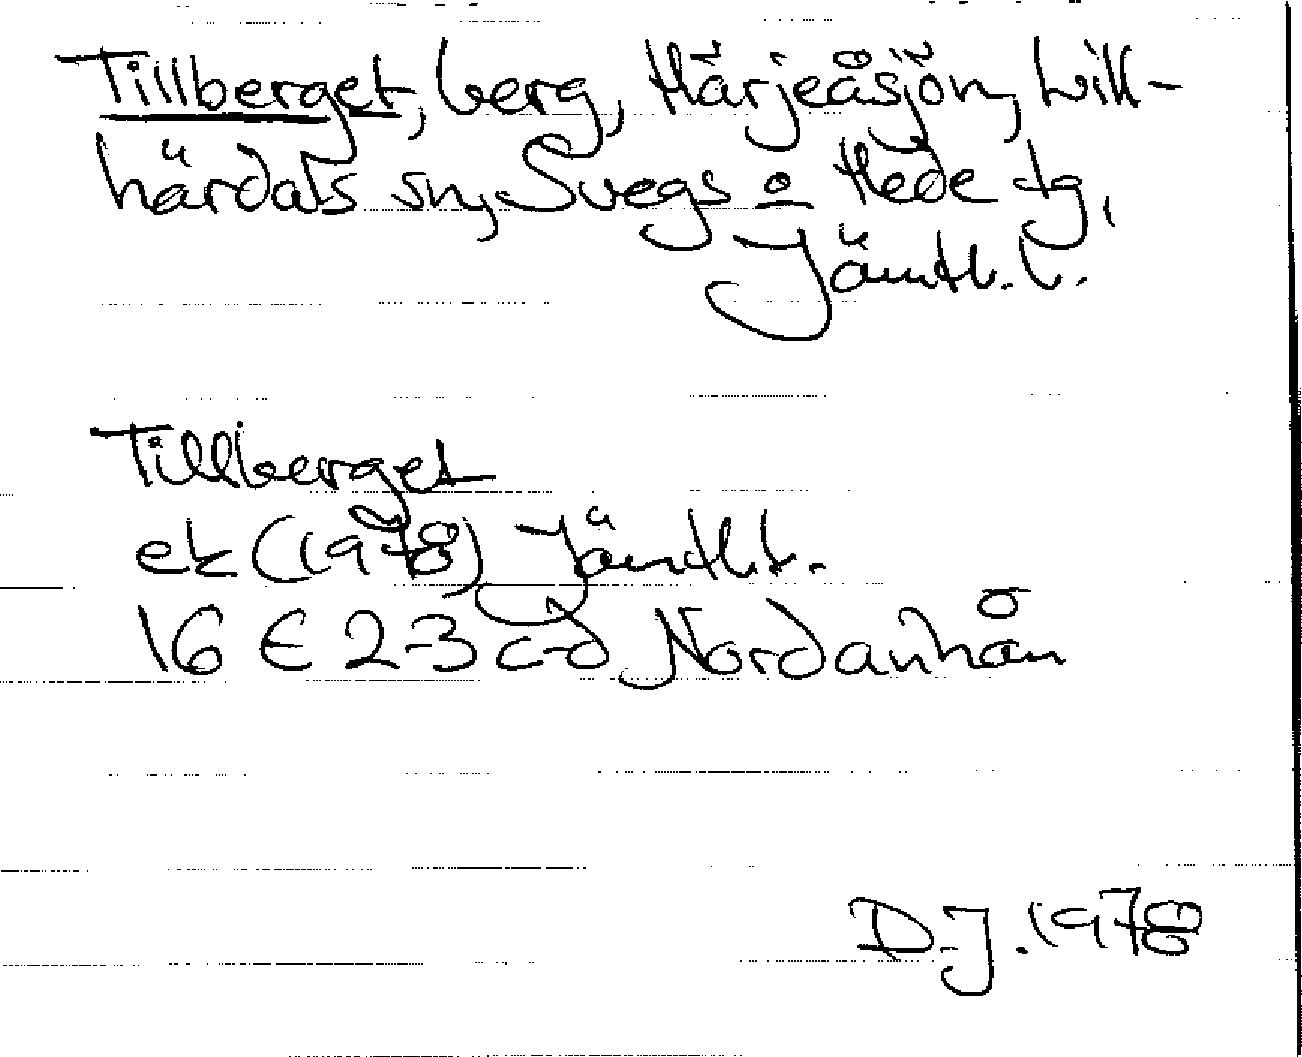 Tillberget, berg, Härjeåsjön, Lill-
härdals sn, Svegs o Hede tg,
Jämtl. l.
Tillberget
ek (1978) Jämtl. l.
16 E 2-3 c-d Nordanhån
D.J. 1978